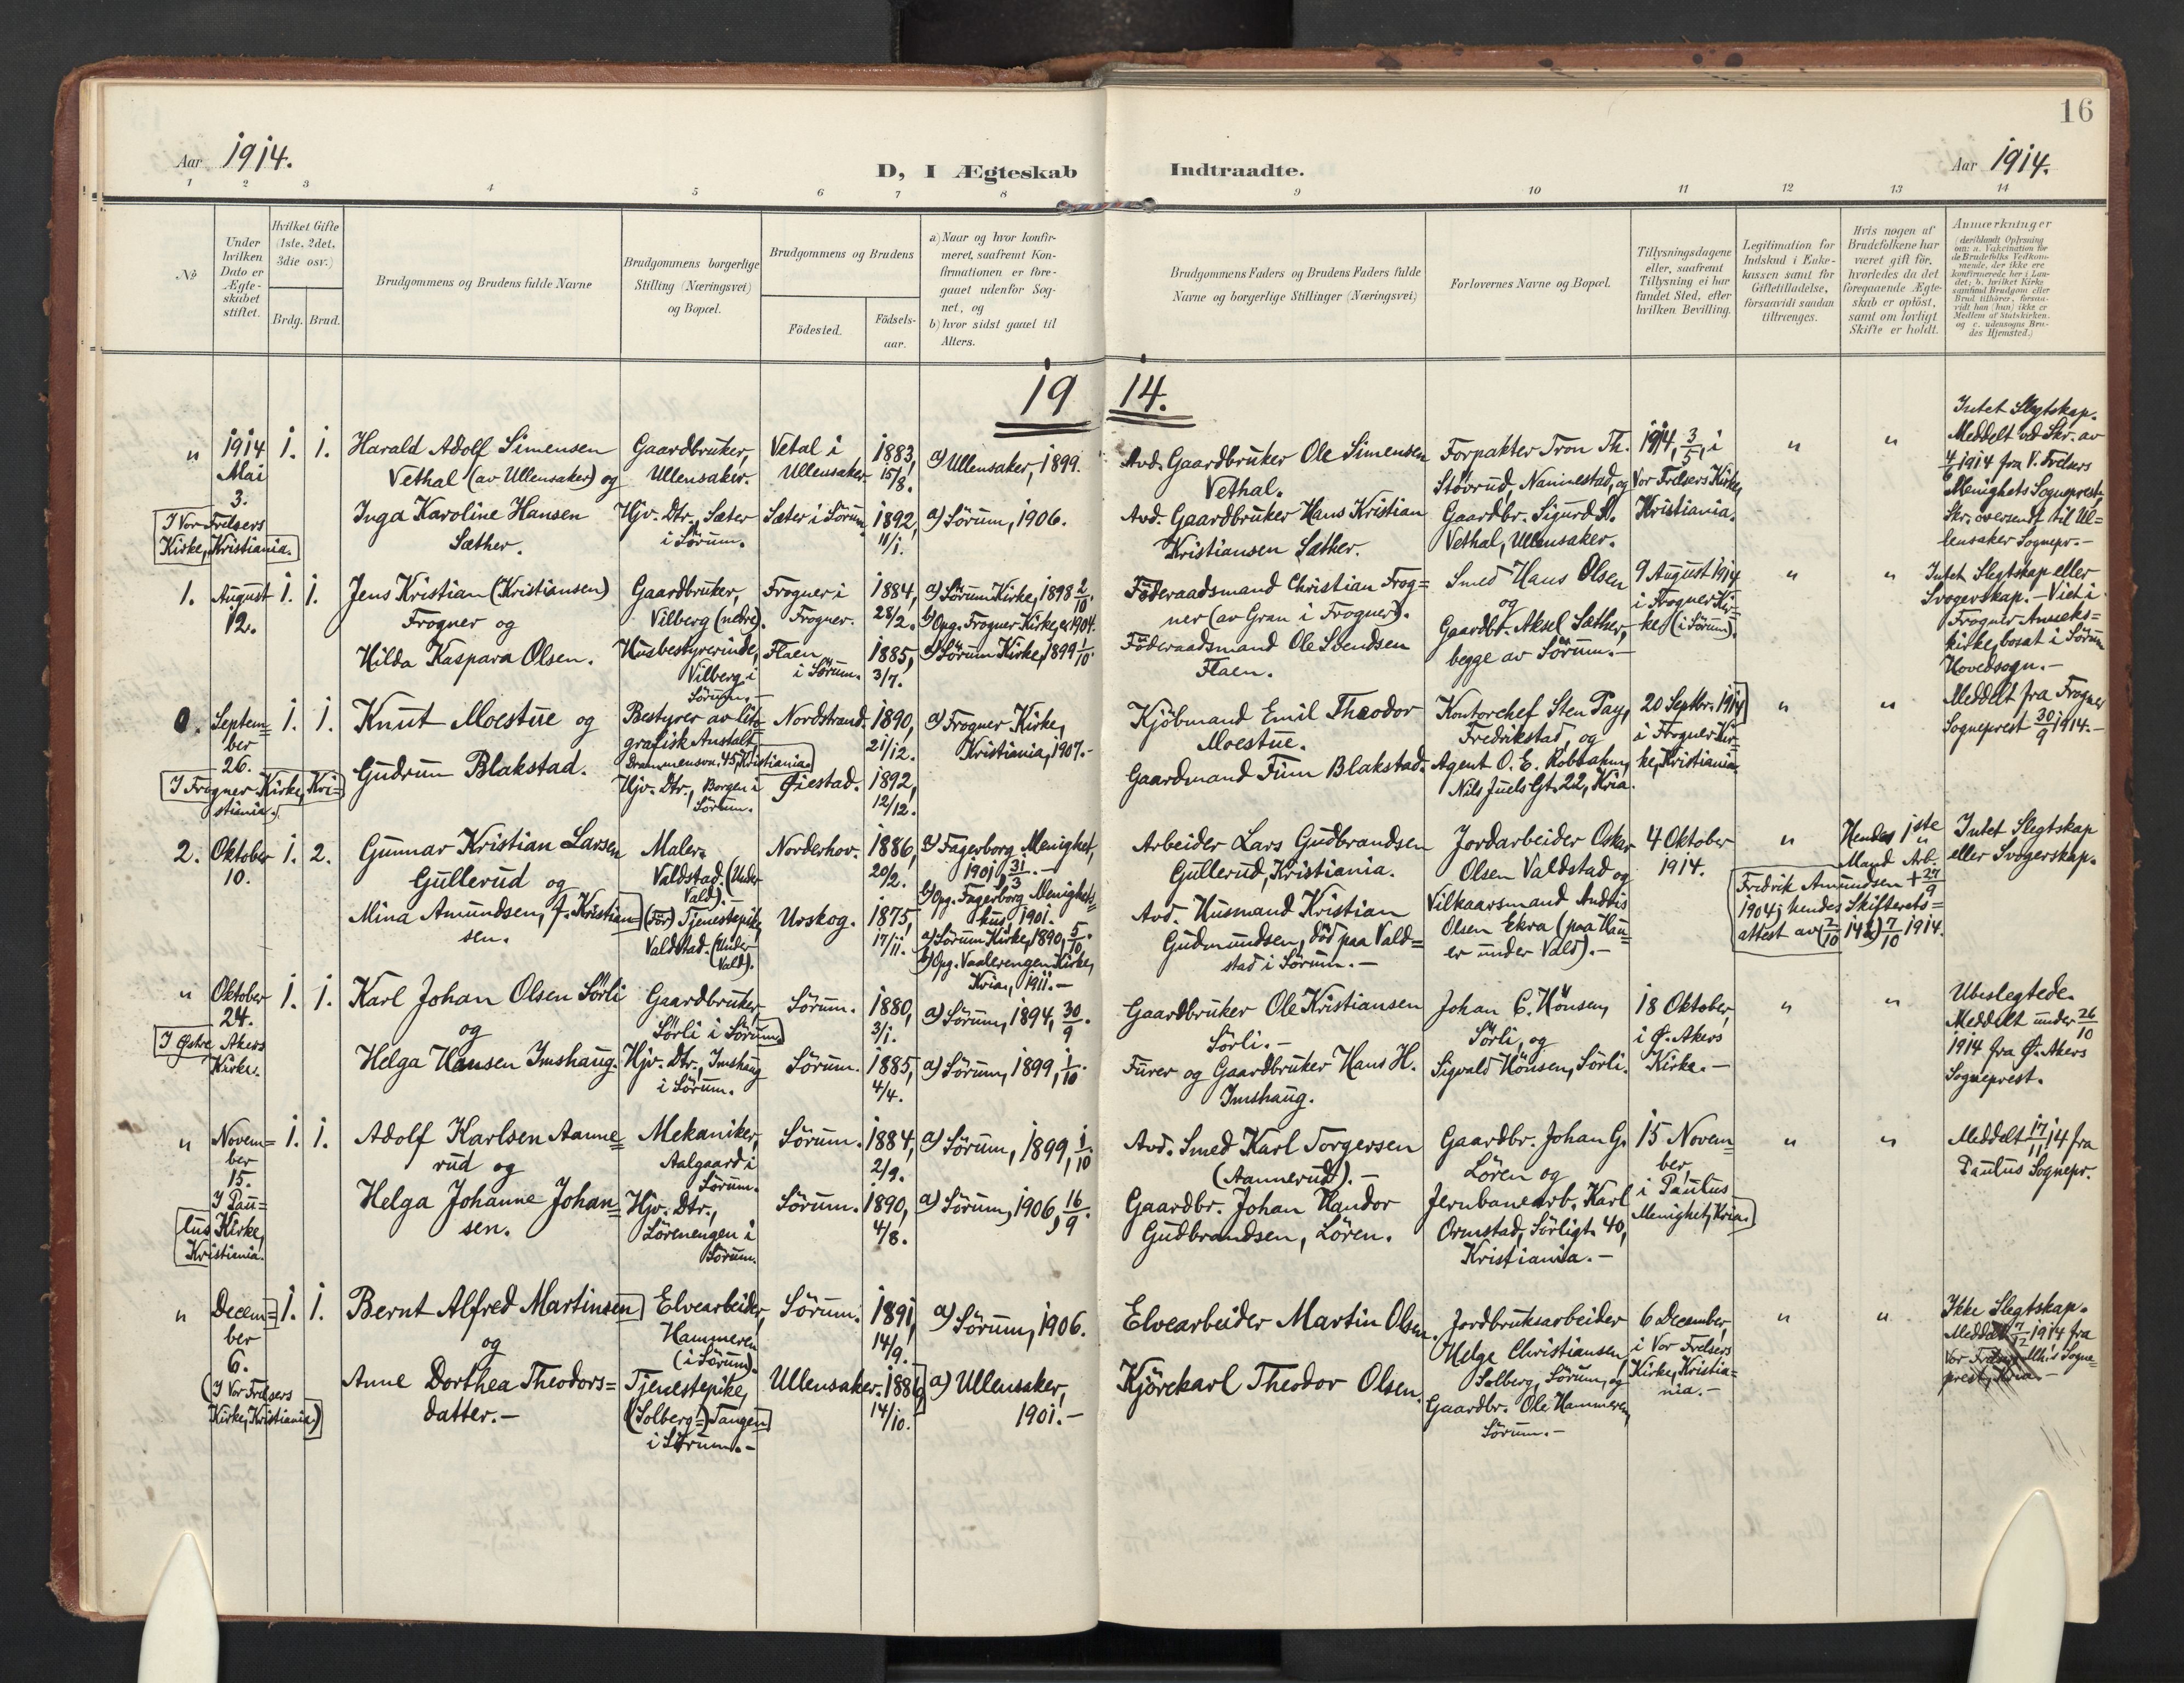 16
Aar 1914.
D, I Ægteskab Indtraadte.
Aar 1914.
1 2 3 4 5 6 7 8 9 10 11 12 13 14
No
Under hvilken Dato er Ægteskabet stiftet.
Hvilket Gifte (1ste, 2det, 3die osv.)
Brdg. Brud.
Brudgommens og Brudens fulde Navne
Brudgommens borgerlige Stilling (Næringsvei) og Bopæl.
Brudgommens og Brudens
Födested.
Födselsaar.
a) Naar og hvor konfirmeret, saafremt Konfirmationen er foregaaet udenfor Sognet, og
b) hvor sidst gaaet til Alters.
Brudgommens Faders og Brudens Faders fulde Navne og borgerlige Stillinger (Næringsvei)
Forlovernes Navne og Bopæl.
Tillysningsdagene eller, saafremt Tillysning ei har fundet Sted, efter hvilken Bevilling.
Legitimation for Indskud i Enkekassen samt for Giftetilladelse, forsaavidt saadan tiltrænges.
Hvis nogen af Brudefolkene har været gift för, hvorledes da det foregaaende Ægteskab er oplöst, samt om lovligt Skifte er holdt.
Anmærkninger
(deriblandt Oplysning om: a. Vakcination for de Brudefolks Vedkommende, der ikke ere konfirmerede her i Landet; b. hvilket Kirkesamfund Brudgom eller Brud tilhörer, forsaavidt han (hun) ikke er Medlem af Statskirken, og c. udensogns Brudes Hjemsted.)
19 14.
" 1914 Mai 3.
I Vor Frelsers Kirke, Kristiania.
1. 1.
Harald Adolf Simensen
Vethal (av Ullensaker) og
Inga Karoline Hansen
Sæther.
Gaardbruker,
Ullensaker.
Hjv. Dtr., Sæter
i Sörum.
Vetal i
Ullensaker.
Sæter i Sörum.
1883,
15/8.
1892,
11/1.
a) Ullensaker, 1899.
a) Sörum, 1906.
Avd. Gaardbruker Ole Simensen
Vethal.
Avd. Gaardbruker Hans Kristian
Kristiansen Sæther.
Forpakter Tron Th.
Stovrud, Nannestad, og
Gaardbr. Sigurd A.
Vethal, Ullensaker.
1914, 3/5, i
Vor Frelsers Kirke,
Kristiania.
" "
Intet Slegtskap.
Meddelt ved Skr. av
4/6 1914 fra V. Frelsers
Menighets Sogneprest.
Skr. oversendt til Ul=
lensaker Sognepr. -
1. August 12.
1. 1.
Jens Kristian (Kristiansen)
Frogner og
Hilda Kaspara Olsen.
Gaardbruker,
Vilberg (nedre).
Husbestyrerinde,
Vilberg i
Sörum. -
Frogner i
Frogner.
Flaen
i Sörum.
1884,
28/2.
1885,
3/7.
a) Sörum Kirke, 1898 2/10.
b) Opg. Frogner Kirke, 1904.
a) Sörum Kirke, 1899 1/10.
Föderaadsmand Christian Frog=
ner (av Gran i Frogner).
Föderaadsmand Ole Svendsen
Flaen.
Smed Hans Olsen
og
Gaardbr. Aksel Sæther,
begge av Sörum. -
9 August 1914
i Frogner Kir=
ke, (i Sörum).
" "
Intet Slegtskap eller
Svogerskap. - Viet i
Frogner Anneks=
kirke, bosat i Sörum
Hovedsogn. -
0. Septem=
ber
26.
I Frogner Kirke, Kri=
stiania.
1. 1.
Knut Moestue og
Gudrun Blakstad.
Bestyrer av lito=
grafisk Anstalt
Drammensvn. 45, Kristiania.
Hjv. Dtr., Borgen i
Sörum.
Nordstrand.
Øiestad.
1890,
21/12.
1892,
12/12.
a) Frogner Kirke,
Kristiania, 1907. -
Kjöbmand Emil Theodor
Moestue.
Gaardmand Finn Blakstad.
Kontorchef Sten Pay,
Fredrikstad, og
Agent O. E.
Nils Juels Gt. 22, Kria.
20 Septbr. 1914
i Frogner Kir=
ke, Kristiania.
" "
Meddelt fra Frogner
Sogneprest 30/9 1914. -
2. Oktober
10.
1. 2.
Gunnar Kristian Larsen
Gullerud og
Mina Amundsen, f. Kristian=
sen.
Maler.
Valdstad. (Under
Vald). -
(För) Tjenestepike,
Valdstad. (Under
Vald).
Norderhov.
Urskog.
1886,
20/2.
1875,
17/11.
a) Fagerborg Menighet,
1901, 31/3. -
b) Opg. Fagerborg Menighets=
hus, 1901.
a) Sörum Kirke, 1890, 5/10.
b) Opg. Vaalerengen Kirke,
Kria, 1911. -
Arbeider Lars Gudbrandsen
Gullerud, Kristiania.
Avd. Husmand Kristian
Gudmundsen, död paa Vald=
stad i Sörum. -
Jordarbeider Oskar
Olsen Valdstad og
Vilkaarsmand
Olsen Ekra (paa Hau=
er under Vald). -
4 Oktober
1914.
"
Hendes 1ste
Mand Arb.
Fredrik Amundsen + 27/9
1904; hendes Skifterets=
attest av 7/10 1914.
Intet Slegtskap
eller Svogerskap.
" Oktober
24.
I Østre Akers
Kirke.
1. 1.
Karl Johan Olsen Sörli
og
Helga Hansen Imshaug.
Gaardbruker,
Sörli i Sörum.
Hjv. Dtr., Imshaug
i Sörum.
Sörum.
Sörum.
1880,
3/1.
1885,
4/4.
a) Sörum, 1894, 30/9.
a) Sörum, 1899, 1/10.
Gaardbruker Ole Kristiansen
Sörli. -
Furer og Gaardbruker Hans H.
Imshaug.
Johan C. Hönsen,
Sörli, og
Sigvald Hönsen, Sörli.
18 Oktober,
i Ø. Akers
Kirke. -
" "
Ubeslegtede.
Meddelt under 26/10
1914 fra Ø. Akers
Sogneprest.
" Novem=
ber
15.
I Pau=
lus Kirke,
Kristiania.
1. 1.
Adolf Karlsen Aanne=
rud og
Helga Johanne Johan=
sen.
Mekaniker,
Aalgaard i
Sörum.
Hjv. Dtr.,
Lörenengen i
Sörum.
Sörum.
Sörum.
1884,
2/9.
1890,
4/8.
a) Sörum, 1899, 1/10.
a) Sörum, 1906, 16/9.
Avd. Smed Karl Torgersen
(Aannerud). -
Gaardbr. Johan Handor
Gudbrandsen, Lören.
Gaardbr. Johan G.
Lören og
Jernbanearb. Karl
Ormstad, Sörligt. 40,
Kristiania. -
15 Novem=
ber,
i Paulus
Menighet, Kria.
" "
Meddelt 17/11 14 fra
Paulus Sognepr.
" Decem=
ber
6.
(I Vor Frelsers
Kirke, Kristiania.)
1. 1.
Bernt Alfred Martinsen
og
Anne Dorthea Theodors=
datter. -
Elvearbeider,
Hammeren
(i Sörum).
Tjenestepike,
(Solberg=) Tangen
i Sörum. -
Sörum.
Ullensaker.
1891,
14/9.
1886,
14/10.
a) Sörum, 1906.
a) Ullensaker,
1901. -
Elvearbeider Martin Olsen.
Kjörekarl Theodor Olsen.
Jordbruksarbeider
Helge Christiansen
Solberg, Sörum, og
Gaardbr. Ole Hammeren,
Sörum. -
6 December,
i Vor Frelsers
Kirke, Kristia=
nia. -
" "
Ikke Slegtskap.
Meddelt 7/12 1914 fra
Vor Frelsers Men's Sogne=
prest, Kria. -